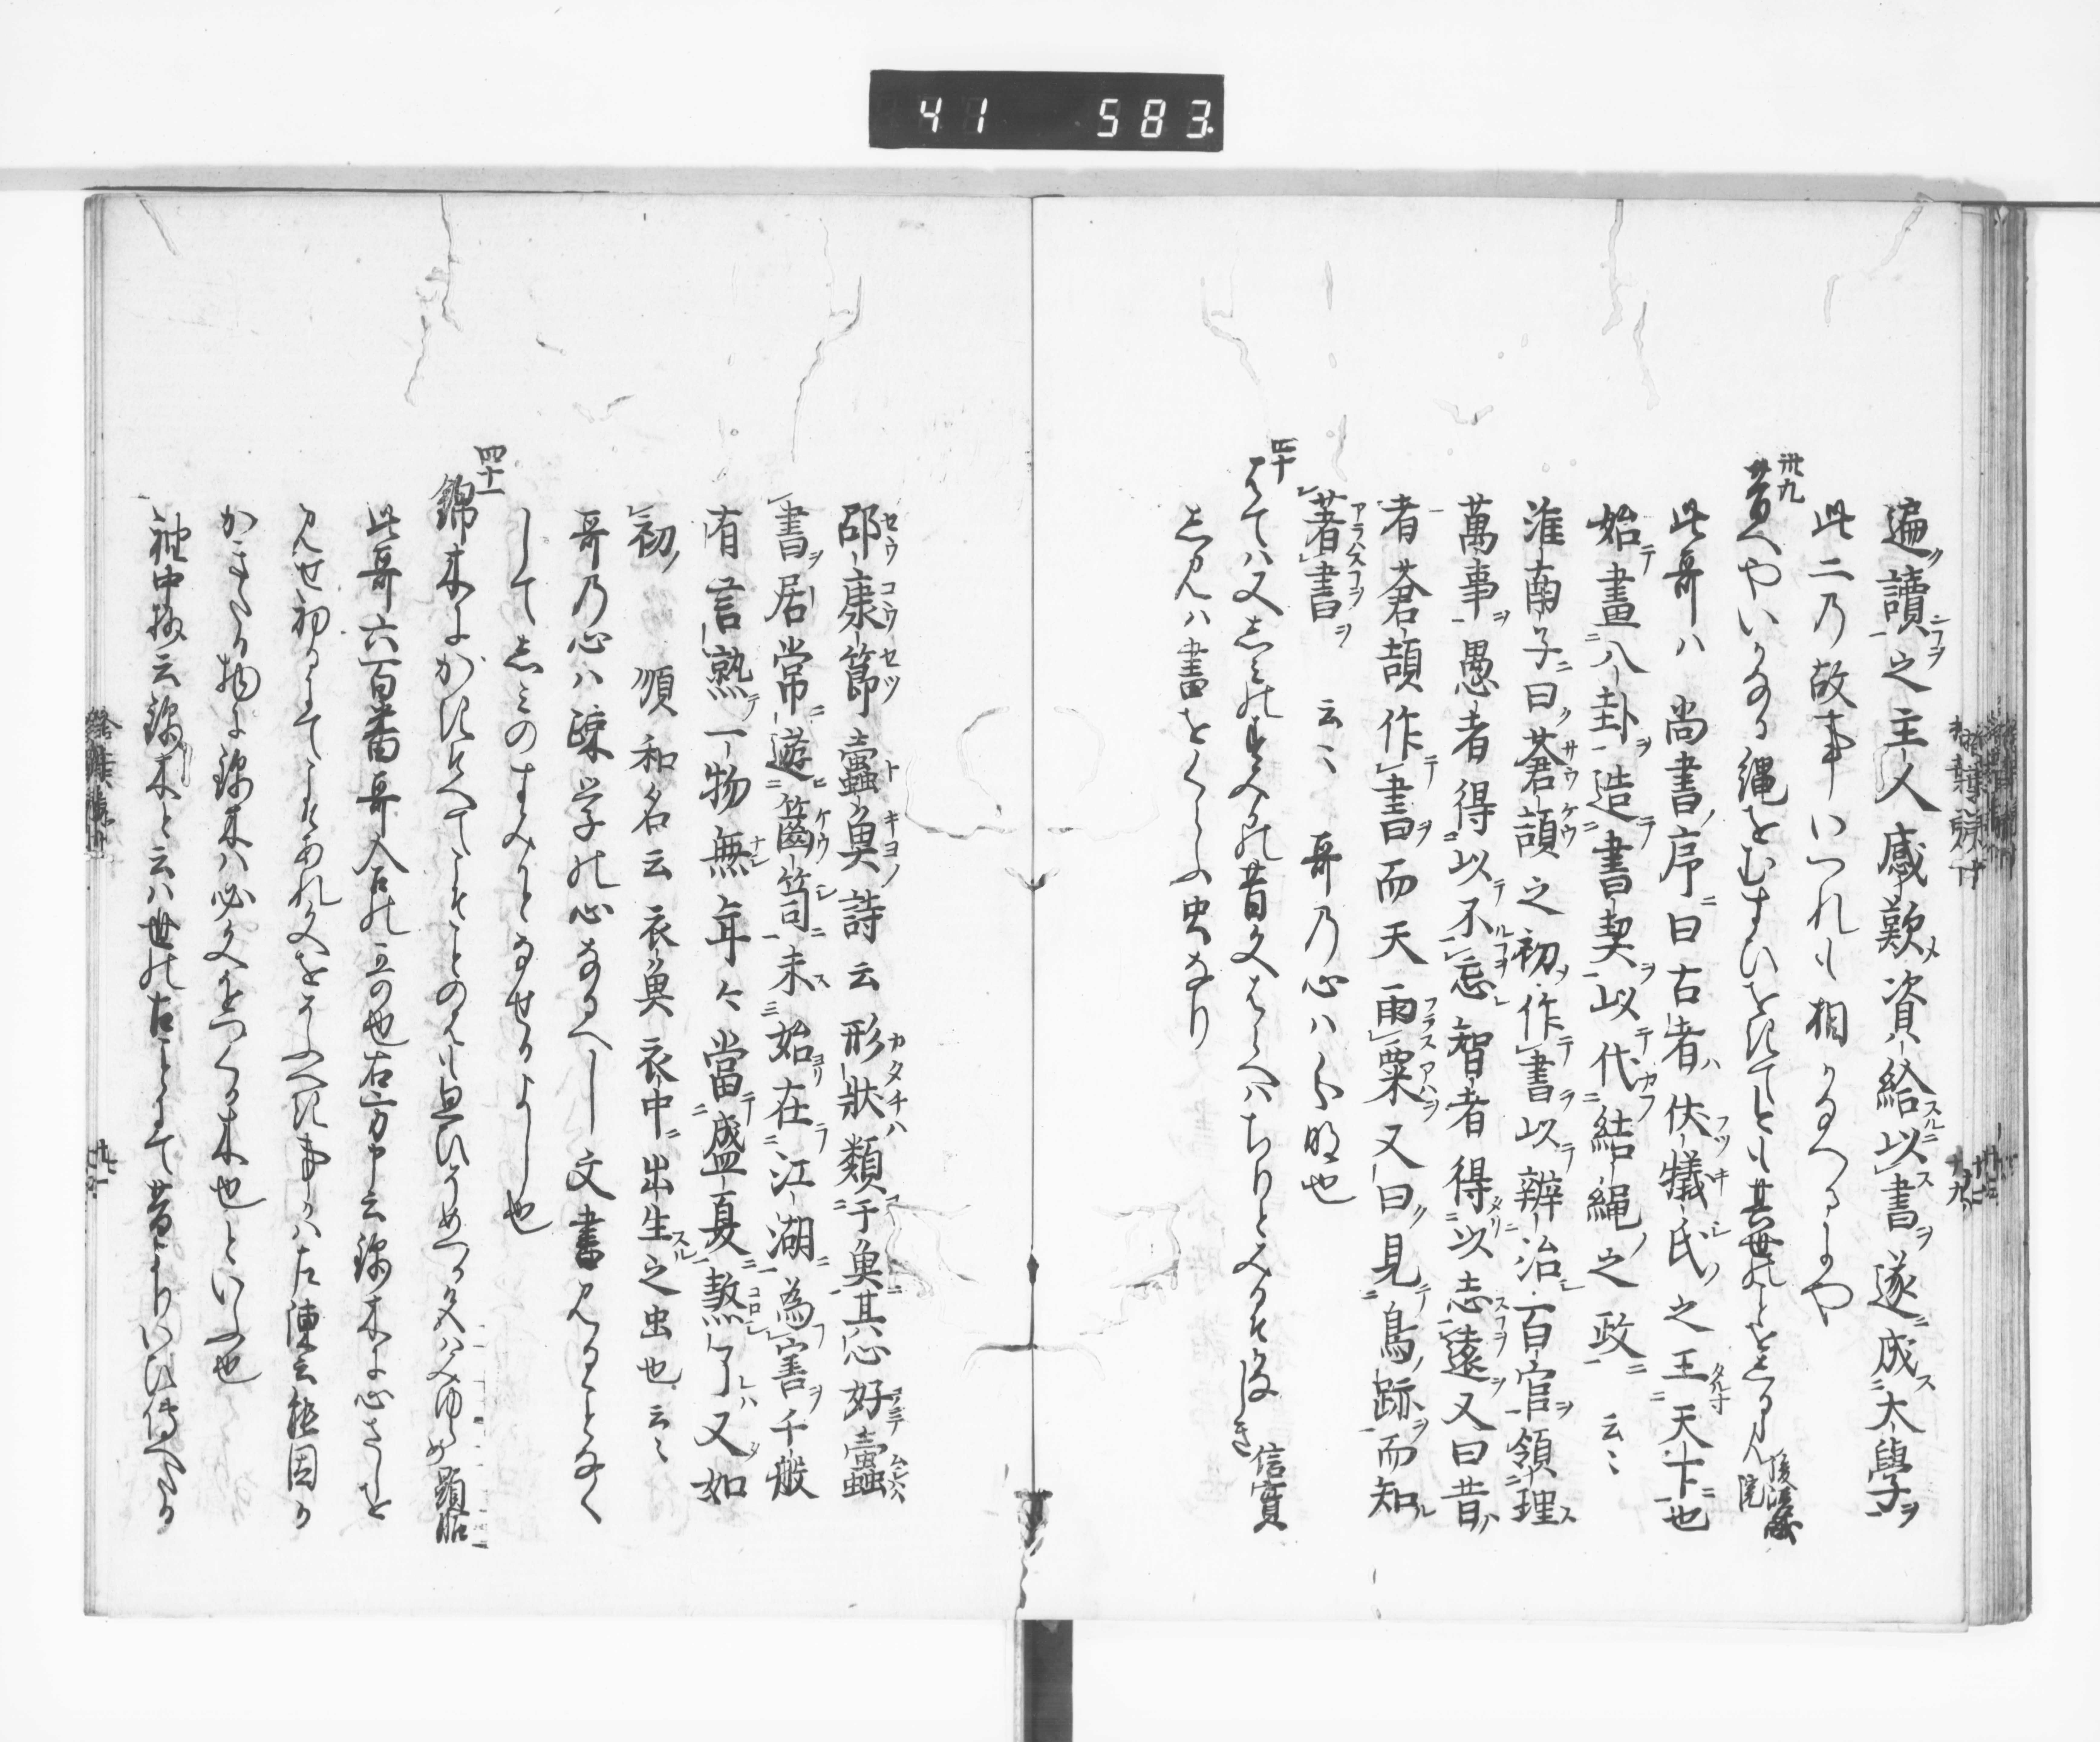 41 583
遍讀之主人感歎資給以書遂成大學
此二乃故事いつれも相かなへるにや
卅九
昔へやいかなる縄をむすひをきてとも其世のことをしる
後法性寺院
此哥ハ尚書序曰古者伏犠氏之王天下也
始畫八卦造書契以代結縄之政云々
淮南子曰蒼頡之初作書以辨治百官領理
萬事愚者得以不忘智者得以志遠又曰昔
者蒼頡作書而天雨粟又曰見鳥跡而知
著書云々哥乃心ハ分明也
四十
信實
しみハ書をくらふ虫なり
邵康節蠹魚詩云形状類于魚其心好蠹
書居常遊篋笥未始在江湖為害千般
有言熱一物無年々當盛夏熬了又如
初順和名云衣魚衣中ニ出生之虫也云々
哥乃心ハ疎学の心なるへし文書みることなく
してしみのすみかとなせるよし也
四十一
錦木にかきそへてこそことのはも思ひそめつる文ハみゆらめ 顕昭
此哥六百番哥合の哥也右方申云錦木に心さしを
みせ初るにてこそあれ文をそふへき事かハ左陳云能因か
かきたる物に錦木ハ必文をつくる木也といふ也
袖中抄云錦木と云ハ世の古ことにて昔よりいひ傳へたる